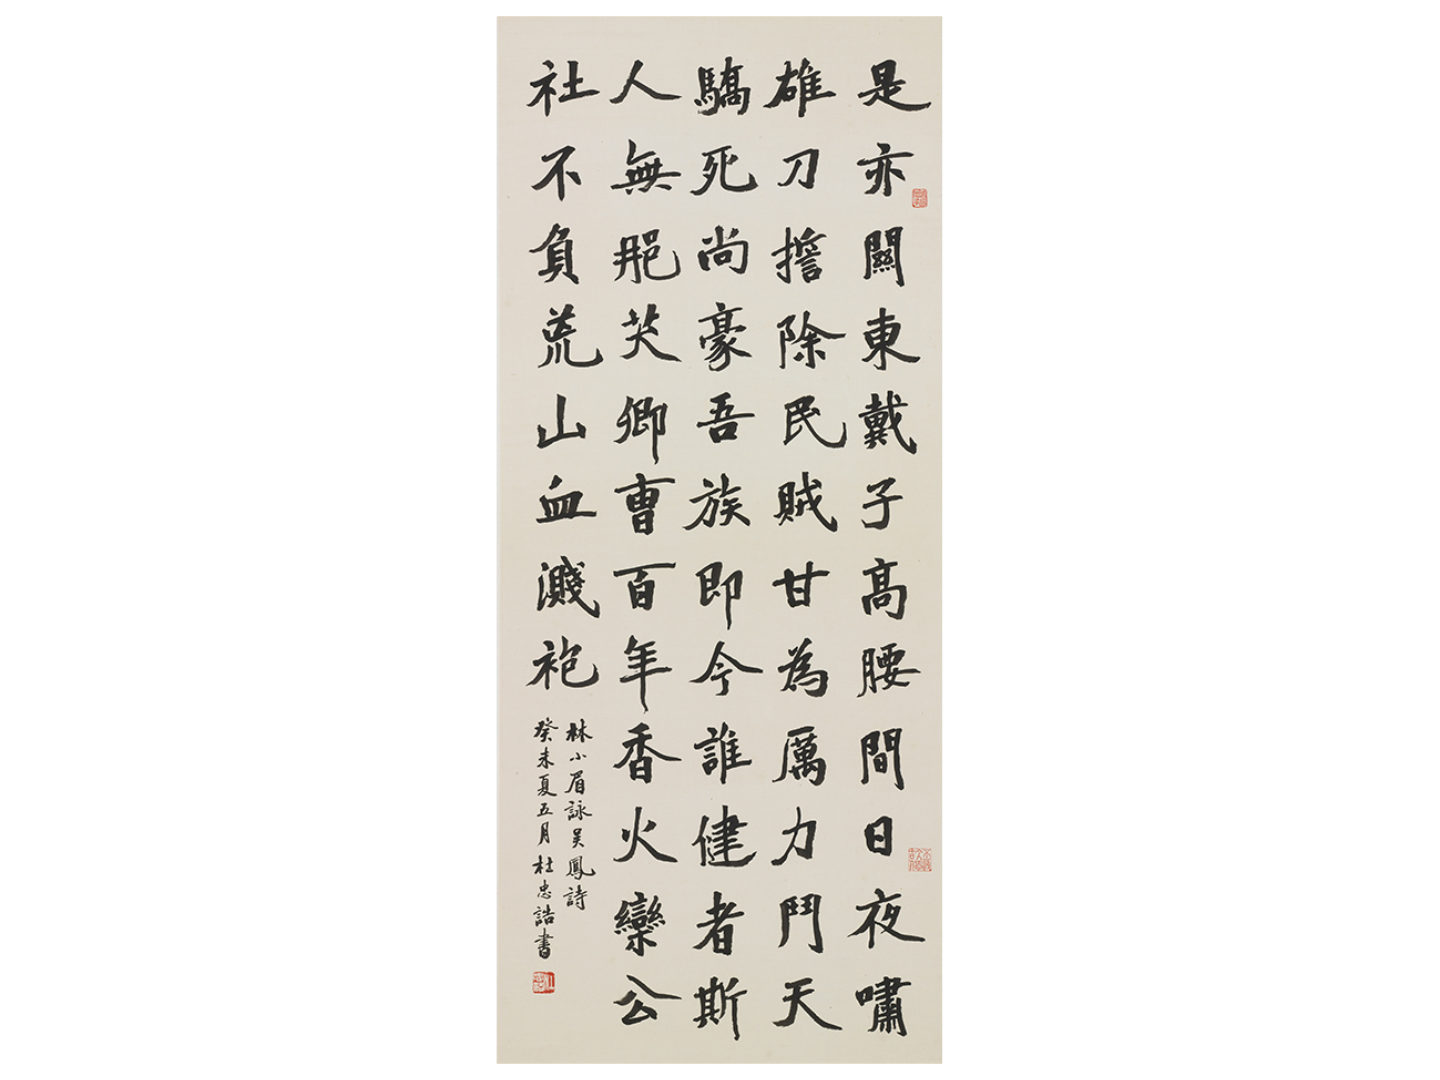 是亦關東戴子高腰間日夜嘯
雄刀擔除民賊甘為厲力鬥天
驕死尚豪吾族即今誰健者斯
人無那笑卿曹百年香火欒公
社不負荒山血濺袍
林小眉詠吳鳳詩
癸未夏五月杜忠誥書